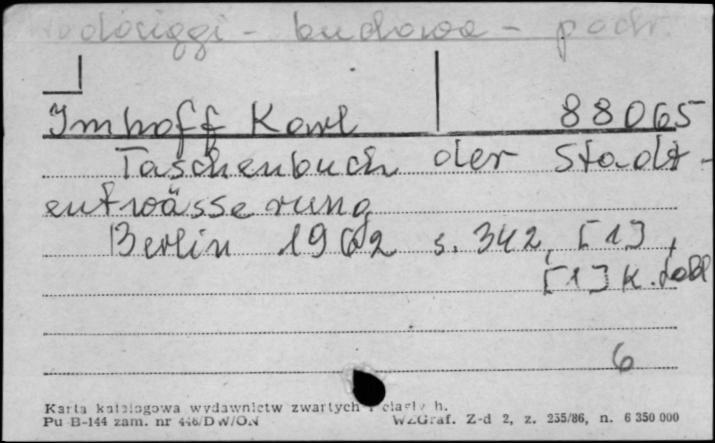 Wodociągi - budowa - podr.
Imhoff Karl 88065
Taschenbuch der Stadt-
entwässerung
Berlin 1962 s. 342, [1],
[1] k. tabl
6
Karta katalogowa wydawnictw zwartych i ciągłych.
Pu B-144 zam. nr 446/DW/ON WZGraf. Z-d 2, z. 235/86, n. 6 350 000